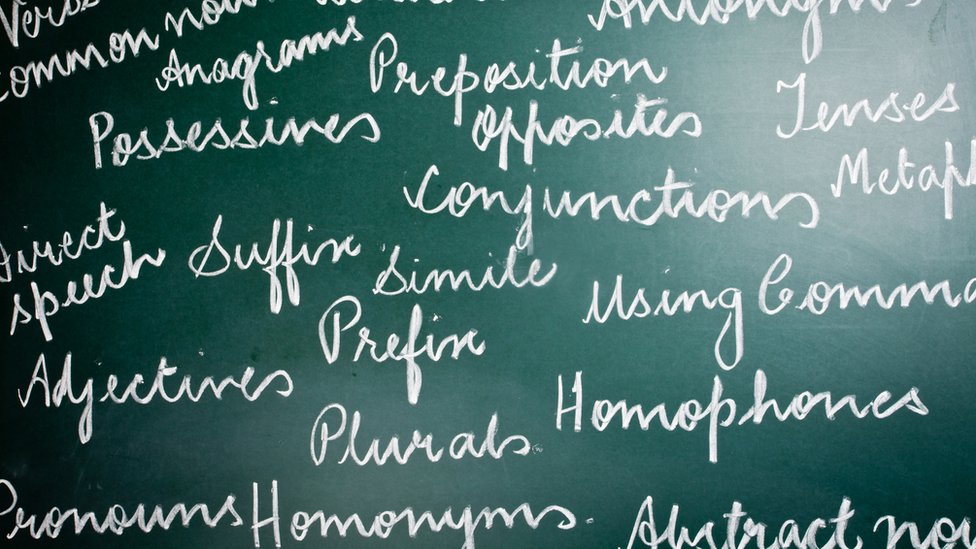 Common noun
Antonyms
Anagrams
Preposition
Tenses
Possessives
Opposites
Conjunctions
Metaph
Direct
speech
Suffix
Simile
Using Comma
Prefix
Adjectives
Homophones
Plurals
Pronouns
Homonyms.
Abstract nou